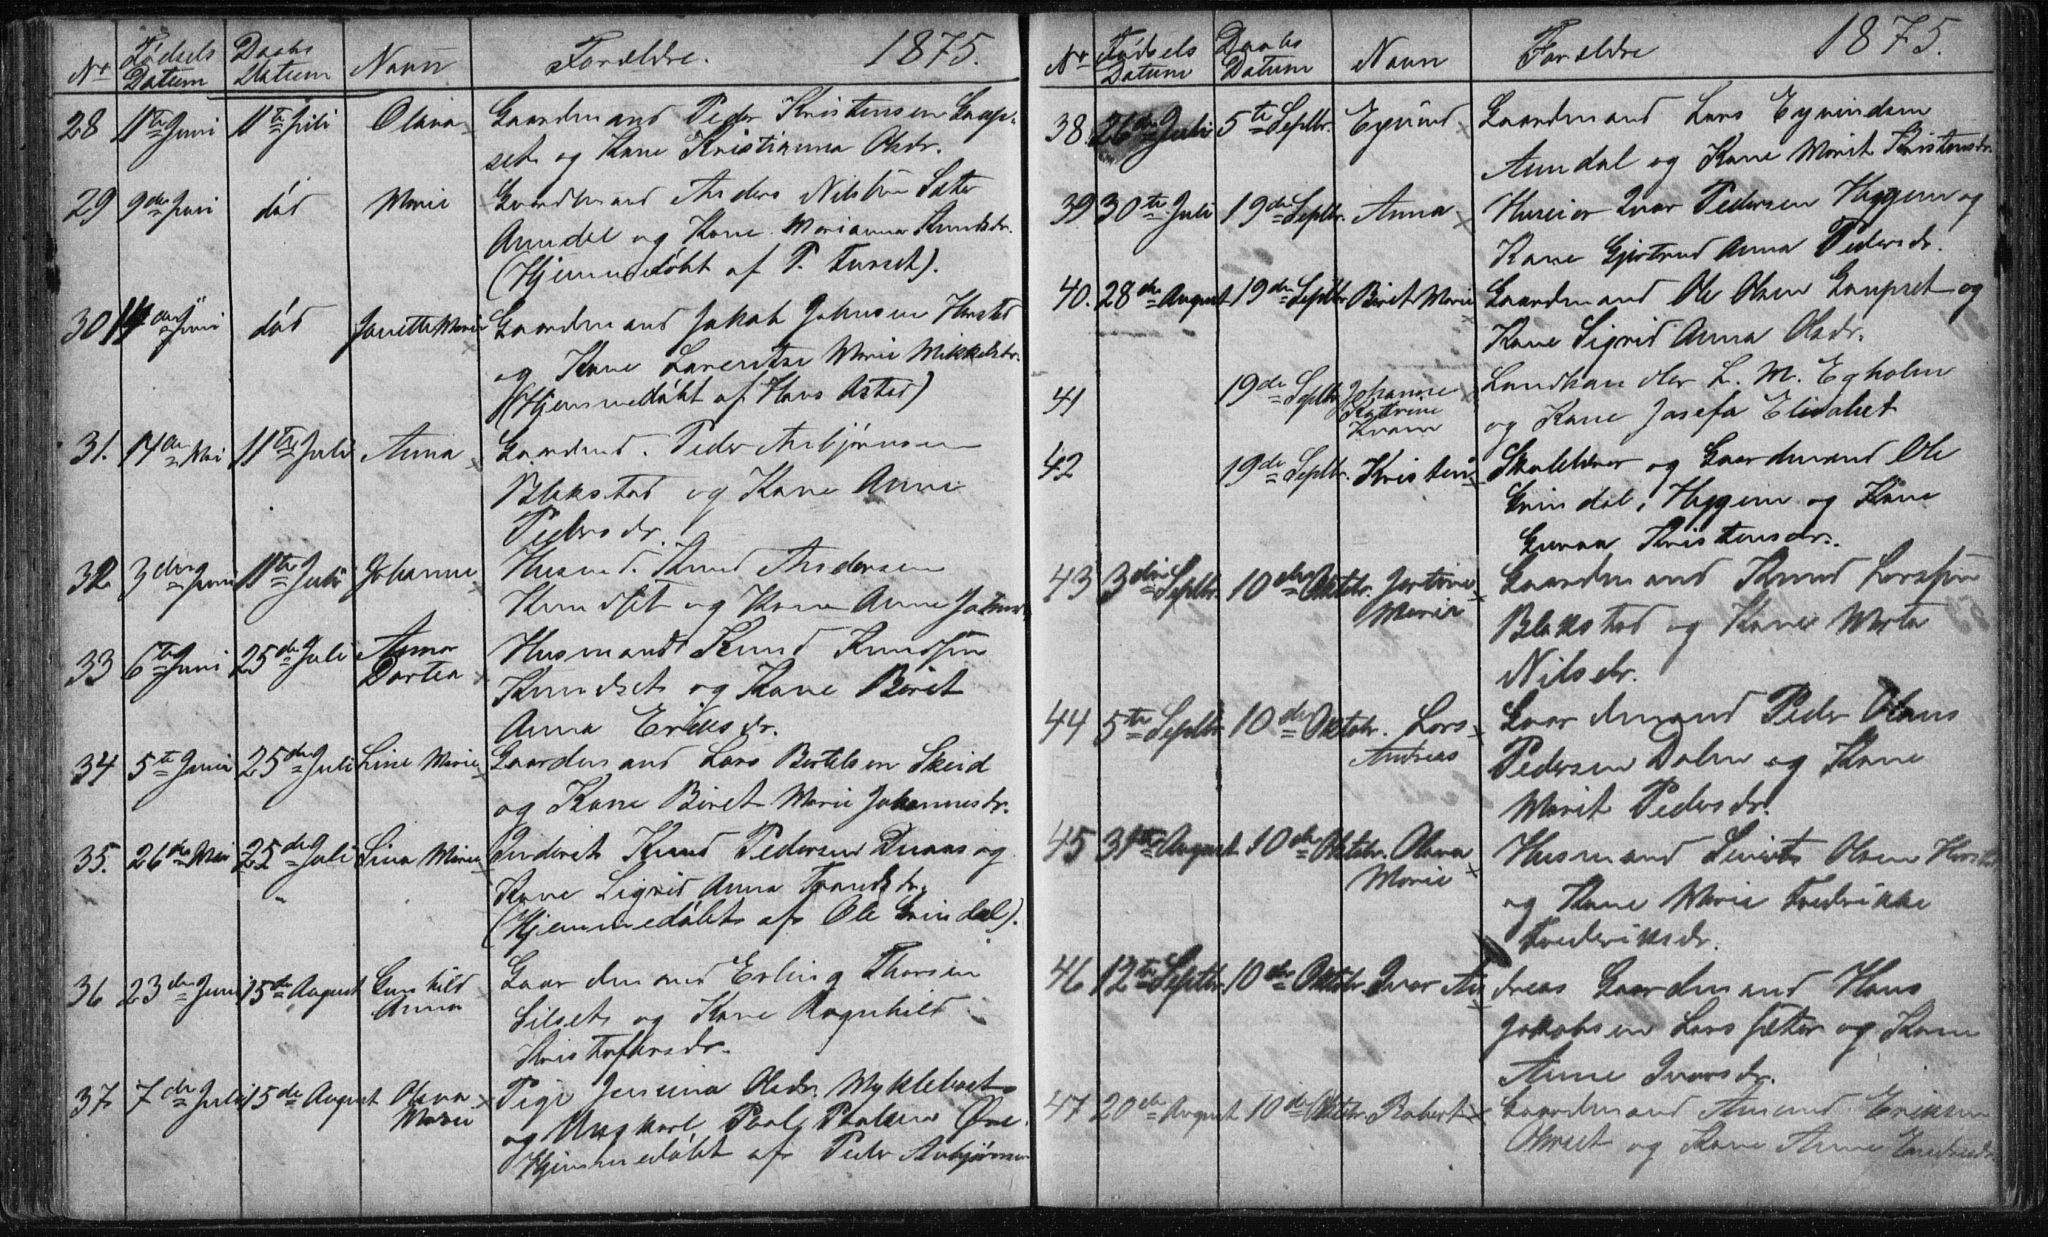 Nr Fødsels Datum Daabs Datum Navn Forældre. 1875.
28 11te Juni 11te Juli Olava Gaardmand Peder Kristensen Gaup-
set og Kone Kristianna Olsdr.
29 9de Juni død Marie Gaardmand Anders Nilsen Sæter
Aundal og Kone Marianna Knudsdr.
(Hjemmedøbt af P. Furset).
30 14de Juni død Janetta Marie Gaardmand Jakob Johnsen Harstad
og Kone Laventse Marie Mikkelsdr.
(Hjemmedøbt af Hans Astad)
31. 14de Mai 11te Juli Anna Gaardmd. Peder Asbjørnsen
Blakstad og Kone Anne
Pedersdr.
32 3die Juni 11te Juli Johanne Husmd. Knud Andersen
Knudset og Kone Anne
33 6te Juni 25de Juli Anna Dortea Husmand Knud Knudsen
Knudset og Kone Beret
Anna Eriksdr.
34 5te Juni 25de Juli Line Marie Gaardmand Lars Bertelsen Skeid
og Kone Beret Marie Johannesdr.
35. 26de Mai 25de Juli Lina Marie Inderst Knud Pedersen Duaas og
Kone Sigrid Anna Trondsdr.
(Hjemmedøbt af Ole Grindal).
36 23de Juni 15de August Gunhild Anna Gaardmand Erling Thorsen
Silset og Kone Ragnhild
Kristofersdr.
37 7de Juli 15de August Olava Marie Pige Jensina Olsdr. Myklebost
og Ungkarl Paal Paalsen Øre
Hjemmedøbt af Peder Asbjørnsen
Nr Fødsels Datum Daabs Datum Navn Forældre 1875.
38. 26de Juli 5te Septbr. Eyvind Gaardmand Lars Eyvindsen
Aundal og Kone Marit Kristensdr.
39 30te Juli 19de Septbr. Anna Huseier Ivar Pedersen Heggem og
Kone Gjertrud Anna Pedersdr.
40. 28de August 19de Septbr. Beret Marie Gaardmand Ole Olsen Gaupset og
Kone Sigrid Anna Olsdr.
41 19de Septbr. Johanne Katrine Kvam Landhandler L. M. Egholm
og Kone Josefa Elisabet
42 19de Septbr. Kristen Skolelærer og Gaardmand Ole
Grindal, Heggem og Kone
Guraa Kristensdr.
43 3die Septbr. 10de Oktobr. Jertine Marie Gaardmand Knud Larssen
Blakstad og Kone Marta
Nilsdr.
44 5te Septbr. 10de Oktobr. Lars Andreas Gaardmand Peder Olaus
Pedersen Dalen og Kone
Marit Pedersdr.
45 31te August 10de Oktobr. Olava Marie Husmand Sivert Olsen
og Kone Marie Fredrikke
Frederiksdr.
46 12te Septbr. 10de Oktobr. Ivar Andreas Gaardmand Hans
Jakobsen Larssæter og Kone
Anne Ivarsdr.
47 20de August 10de Oktobr. Robert Gaardmand Amund Eriksen
og Kone Anne